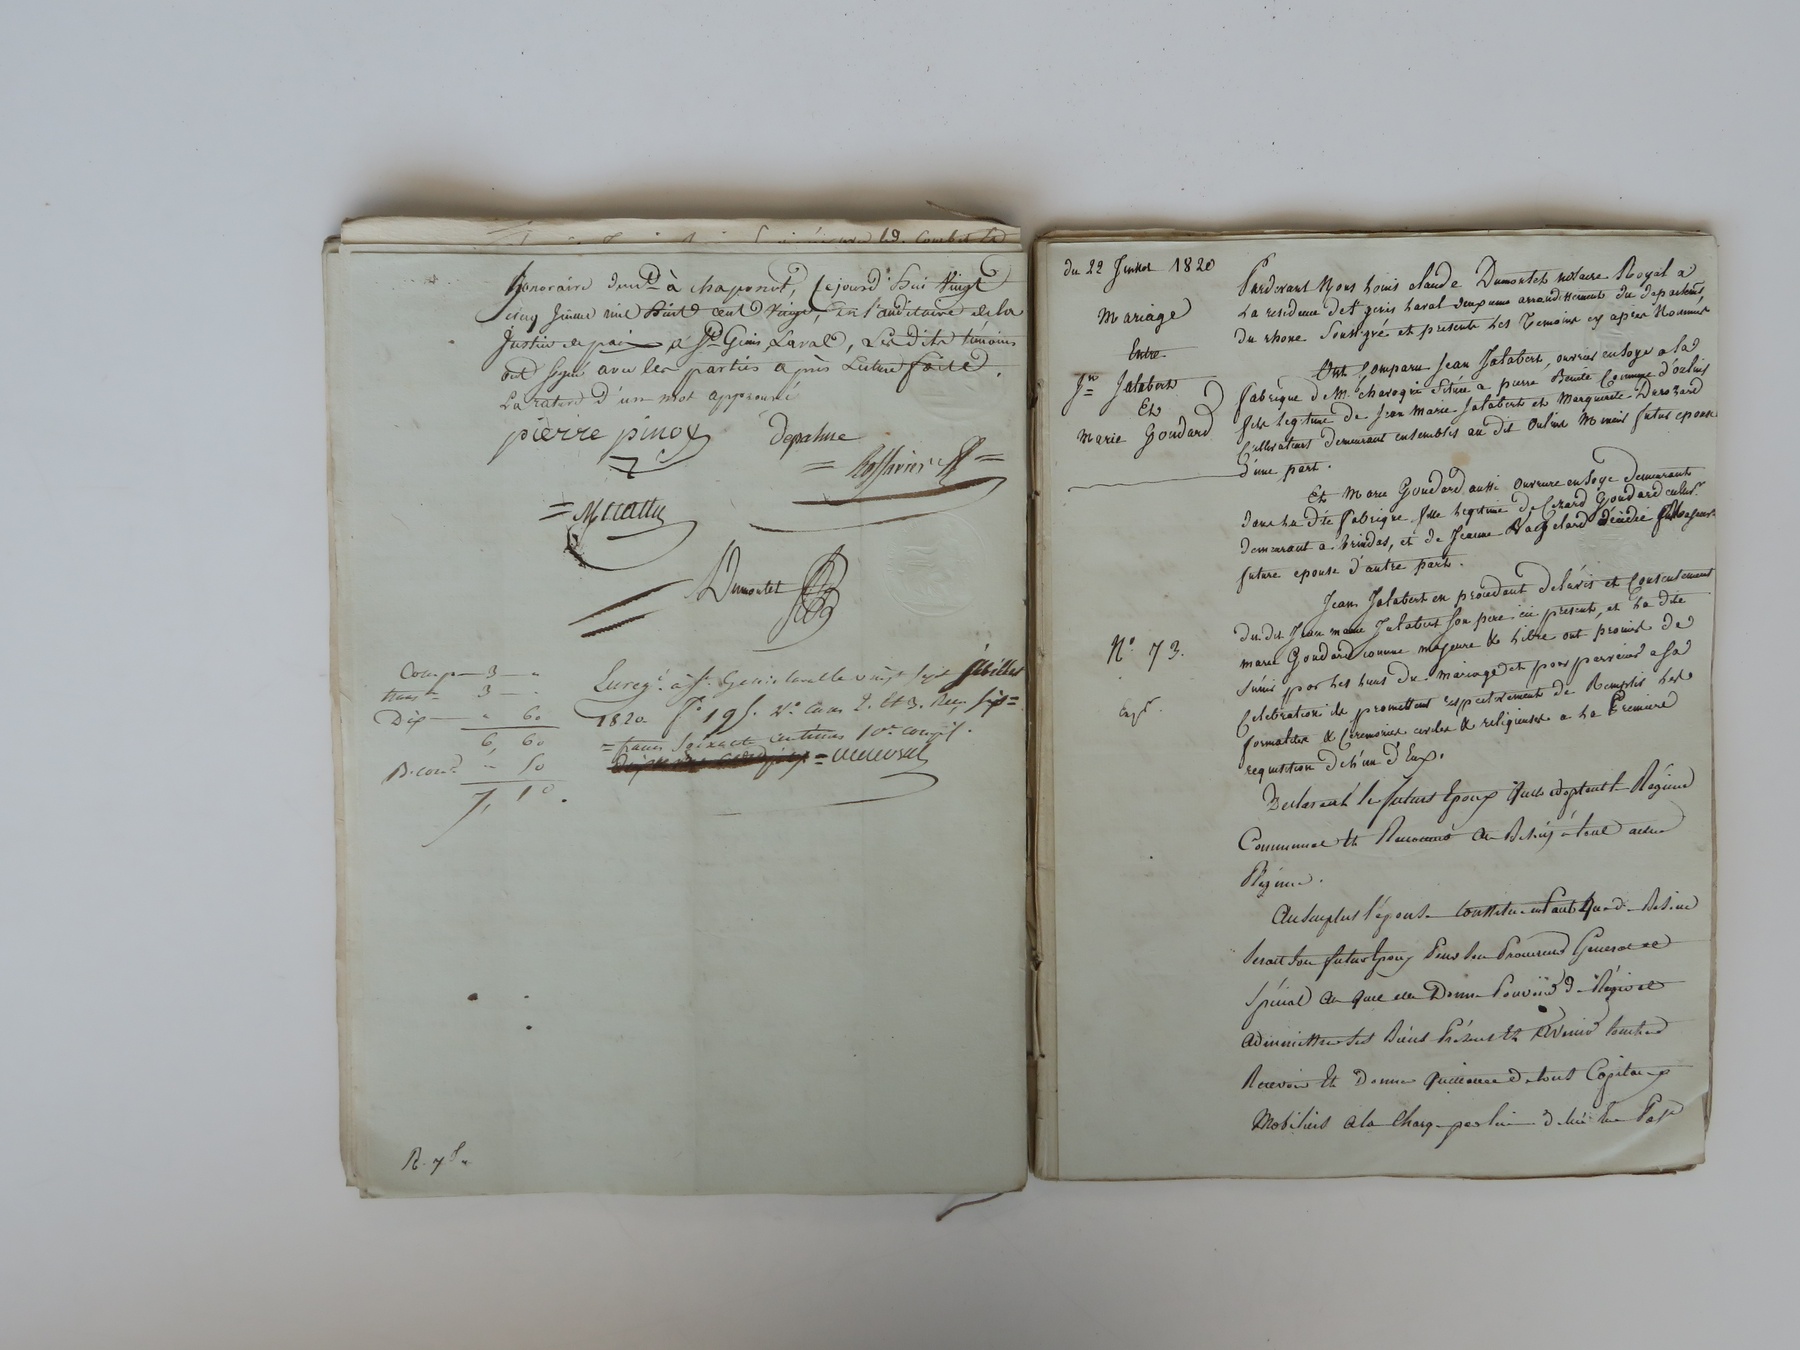 honoraire dem.t à chaponost, Cejourd'hui Vingt
cinq Janvier mil huit cent vingt, En l'auditoire de la
Justice de paix à St Genis Laval, Les dits témoins
ont signé avec les parties après Lecture faite.
La rature d'un mot approuvé
pierre pinoy depalme
Dumontet
Comp — 3 — "
trans — 3 — "
Dix — " 60
6, 60
" 50
7, 10.
Enreg.é à St. Genis laval le vingt sept
1820 f.o 195. V.o Cases 2. et 3. Reçu six
francs soixante centimes 10.e compris.
R. 7
du 22 Janvier 1820
Mariage
Entre
Jn Jalabert
Et
Marie Goudard
N.o 73.
exp.é
Pardevant Nous Louis claude Dumontet notaire Royal a
La residence de St genis Laval deuxieme arrondissement du departement
du rhone soussigné et presents les temoins cy après Nommés
Ont Comparu Jean Jalabert, ouvrier en soye a la
fabrique de Mr. située a pierre Benite Commune d'oulins
fils legitime de Jean Marie Jalabert et Marguerite
Cultivateurs demeurant ensembles au dit Oulins Mineur futur epoux
d'une part.
Et Marie Goudard aussi ouvriere en soye demeurante
dans La dite fabrique fille legitime de Goudard cultiv.r
demeurant a Brindas, et de Jeanne décédée
future epouse d'autre part.
Jean Jalabert en procedant de l'avis et Consentement
du dit Jean marie Jalabert son pere ici present, et La dite
marie Goudard comme majeure & Libre ont promis de
s'unir par les liens du mariage et pour parvenir a sa
Celebration ils promettent respectivement de Remplir les
formalités & Ceremonies civiles & religieuses a La Premiere
requisition de l'un d'Eux.
Déclarent le futurs Epoux qu'ils adoptent le Régime
Communal Et Renoncent à tout autre
Régime.
Au surplus l'épouse constitue en tant que de Besoin
son futur Epoux Pour son Procureur General &
Spécial Au quel elle Donne Pouvoir de Régir et
Administrer ses Biens Présents Et Avenir toucher
Recevoir Et Donner quittance de tous Capitaux
Mobiliers à la charge par lui de